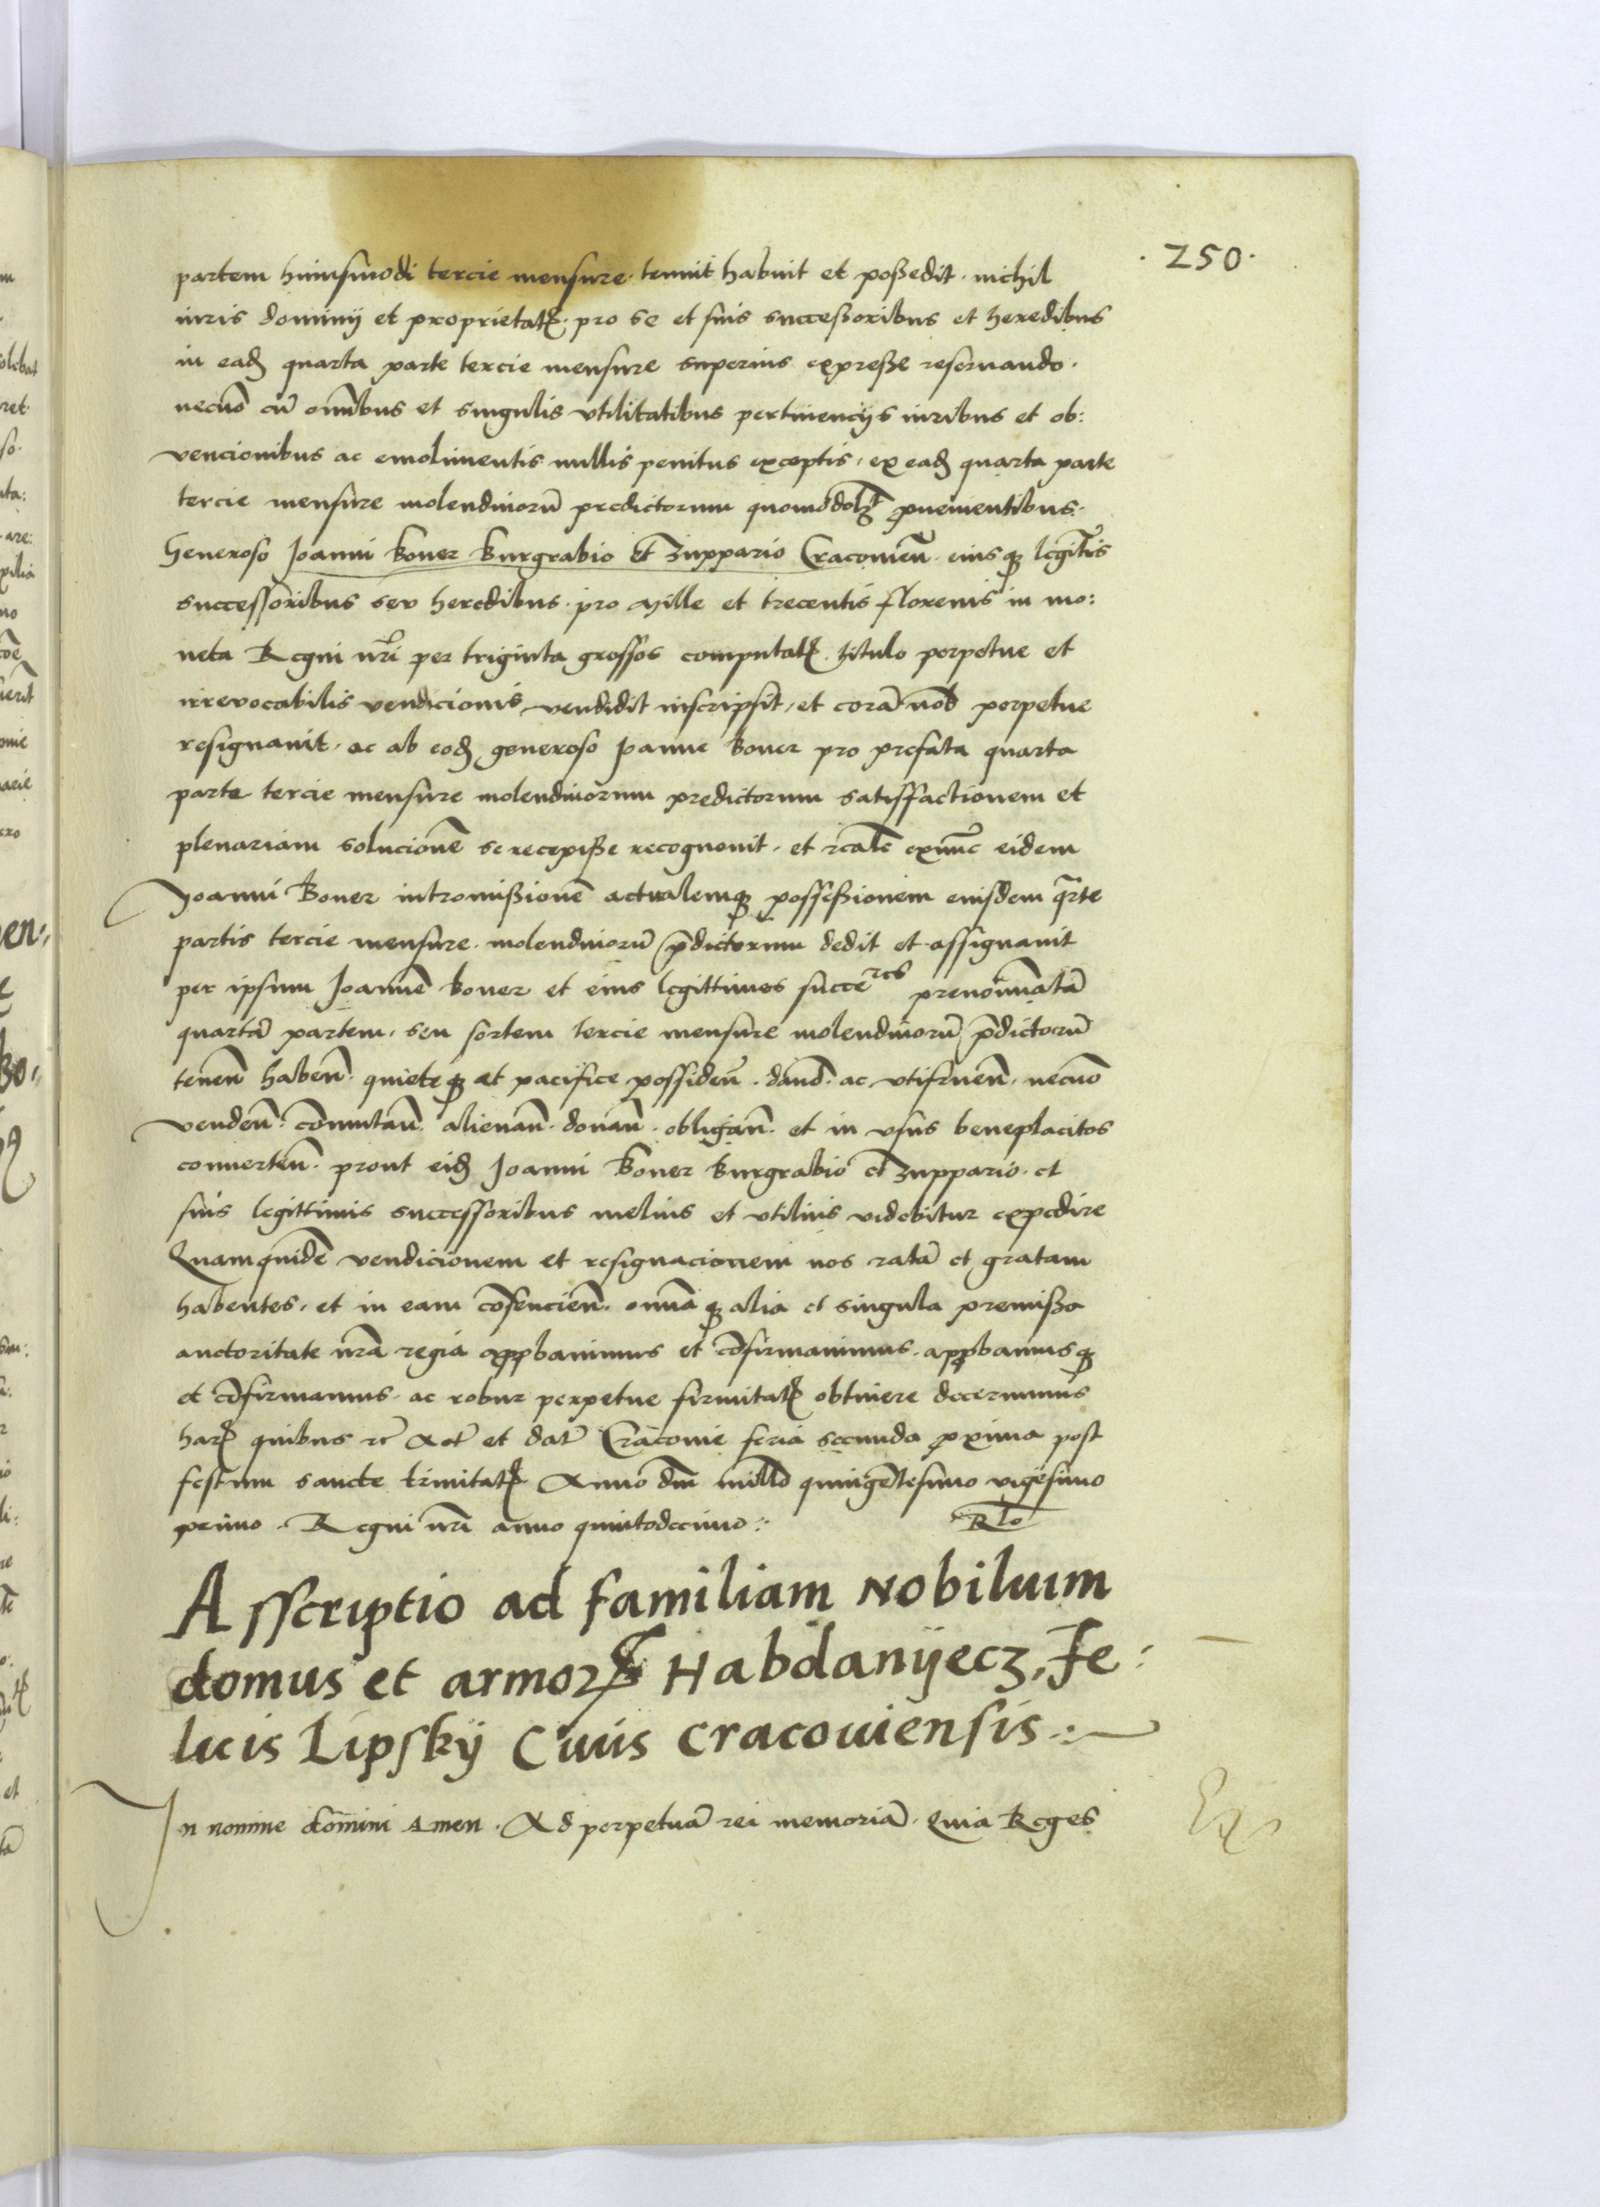 · 250 ·
partem huiusmodi tercie mensure · tenuit habuit et poßedit · nichil
iuris dominij et proprietatꝭ · pro se et suis succeßoribus et heredibus
in eadꝫ quarta parte tercie mensure superius expreße reservando ·
necnō cū om̄ibus et singulis vtilitatibus pertinencijs iuribus et ob:
vencionibus ac emolimentis nullis penitus exceptis, ex eadꝫ quarta parte
tercie mensure molendinorū predictorum quomodolꝫ ꝓuenientibus ·
Generoso Joanni Boner Burgrabio et zuppario Cracouień · eiusqꝫ legitīs
successoribus seu heredibus · pro Mille et trecentis florenis in mo:
neta Regni nr̄i per triginta grossos computatꝭ · titulo perpetue et
irrevocabilis vendicionis vendidit inscripsit, et corā nob perpetue
resignauit, ac ab eodꝫ generoso Joanne Boner pro prefata quarta
parte tercie mensure molendinorum predictorum satisffactionem et
plenariam solucionē se recepiße recognouit, et realē exnūc eidem
Joanni Boner intromißionē actualemqꝫ posseßionem eiusdem qrte
partis tercie mensure · molendinorū p̄dictorum dedit et assignauit
per ipsum Joannē Boner et eius legittimos succeres prenoīnatā
quartā partem, seu sortem tercie mensure molendinorū p̄dictorū
teneń habeń · quieteqꝫ et pacifice possideń · dand · ac vtifrueń, necnō
vendeń · cōmutań · alienań · donań · obligań · et in vsus beneplacitos
conuerteń · prout eidꝫ Joanni Boner Burgrabio et zuppario · et
suis legittimis successoribus melius et vtilius videbitur expedire
Quamquidē vendicionem et resignacionem nos ratā et gratam
habentes, et in eam cōsencień · omniaqꝫ alia et singula premißa
auctoritate nr̄a regia appꝓbauimus et cōfirmauimus · appꝓbamusqꝫ
et cōfirmamus · ac robur perpetue firmitatꝭ obtinere decernimus
harꝭ quibus rē Act et dat Cracouie feria secunda ꝓxima post
festum sancte trinitatꝭ Anno dn̄i millō quingētesimo vigesimo
primo · Regni nr̄i anno quintodecimo :·
Rlo
Asscriptio ad familiam Nobilium
domus et armorꝝ Habdanÿecz, Fe:
licis Lipskÿ Ciuis Cracouiensis :·
In nomine domini Amen · Ad perpetuā rei memoriā · Quia Reges